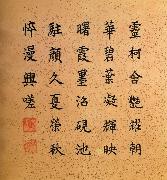 靈柯含艷朝
華碧葉凝輝映
曙霞墨沼硯池
駐顏久夏榮秋
悴漫興嗟